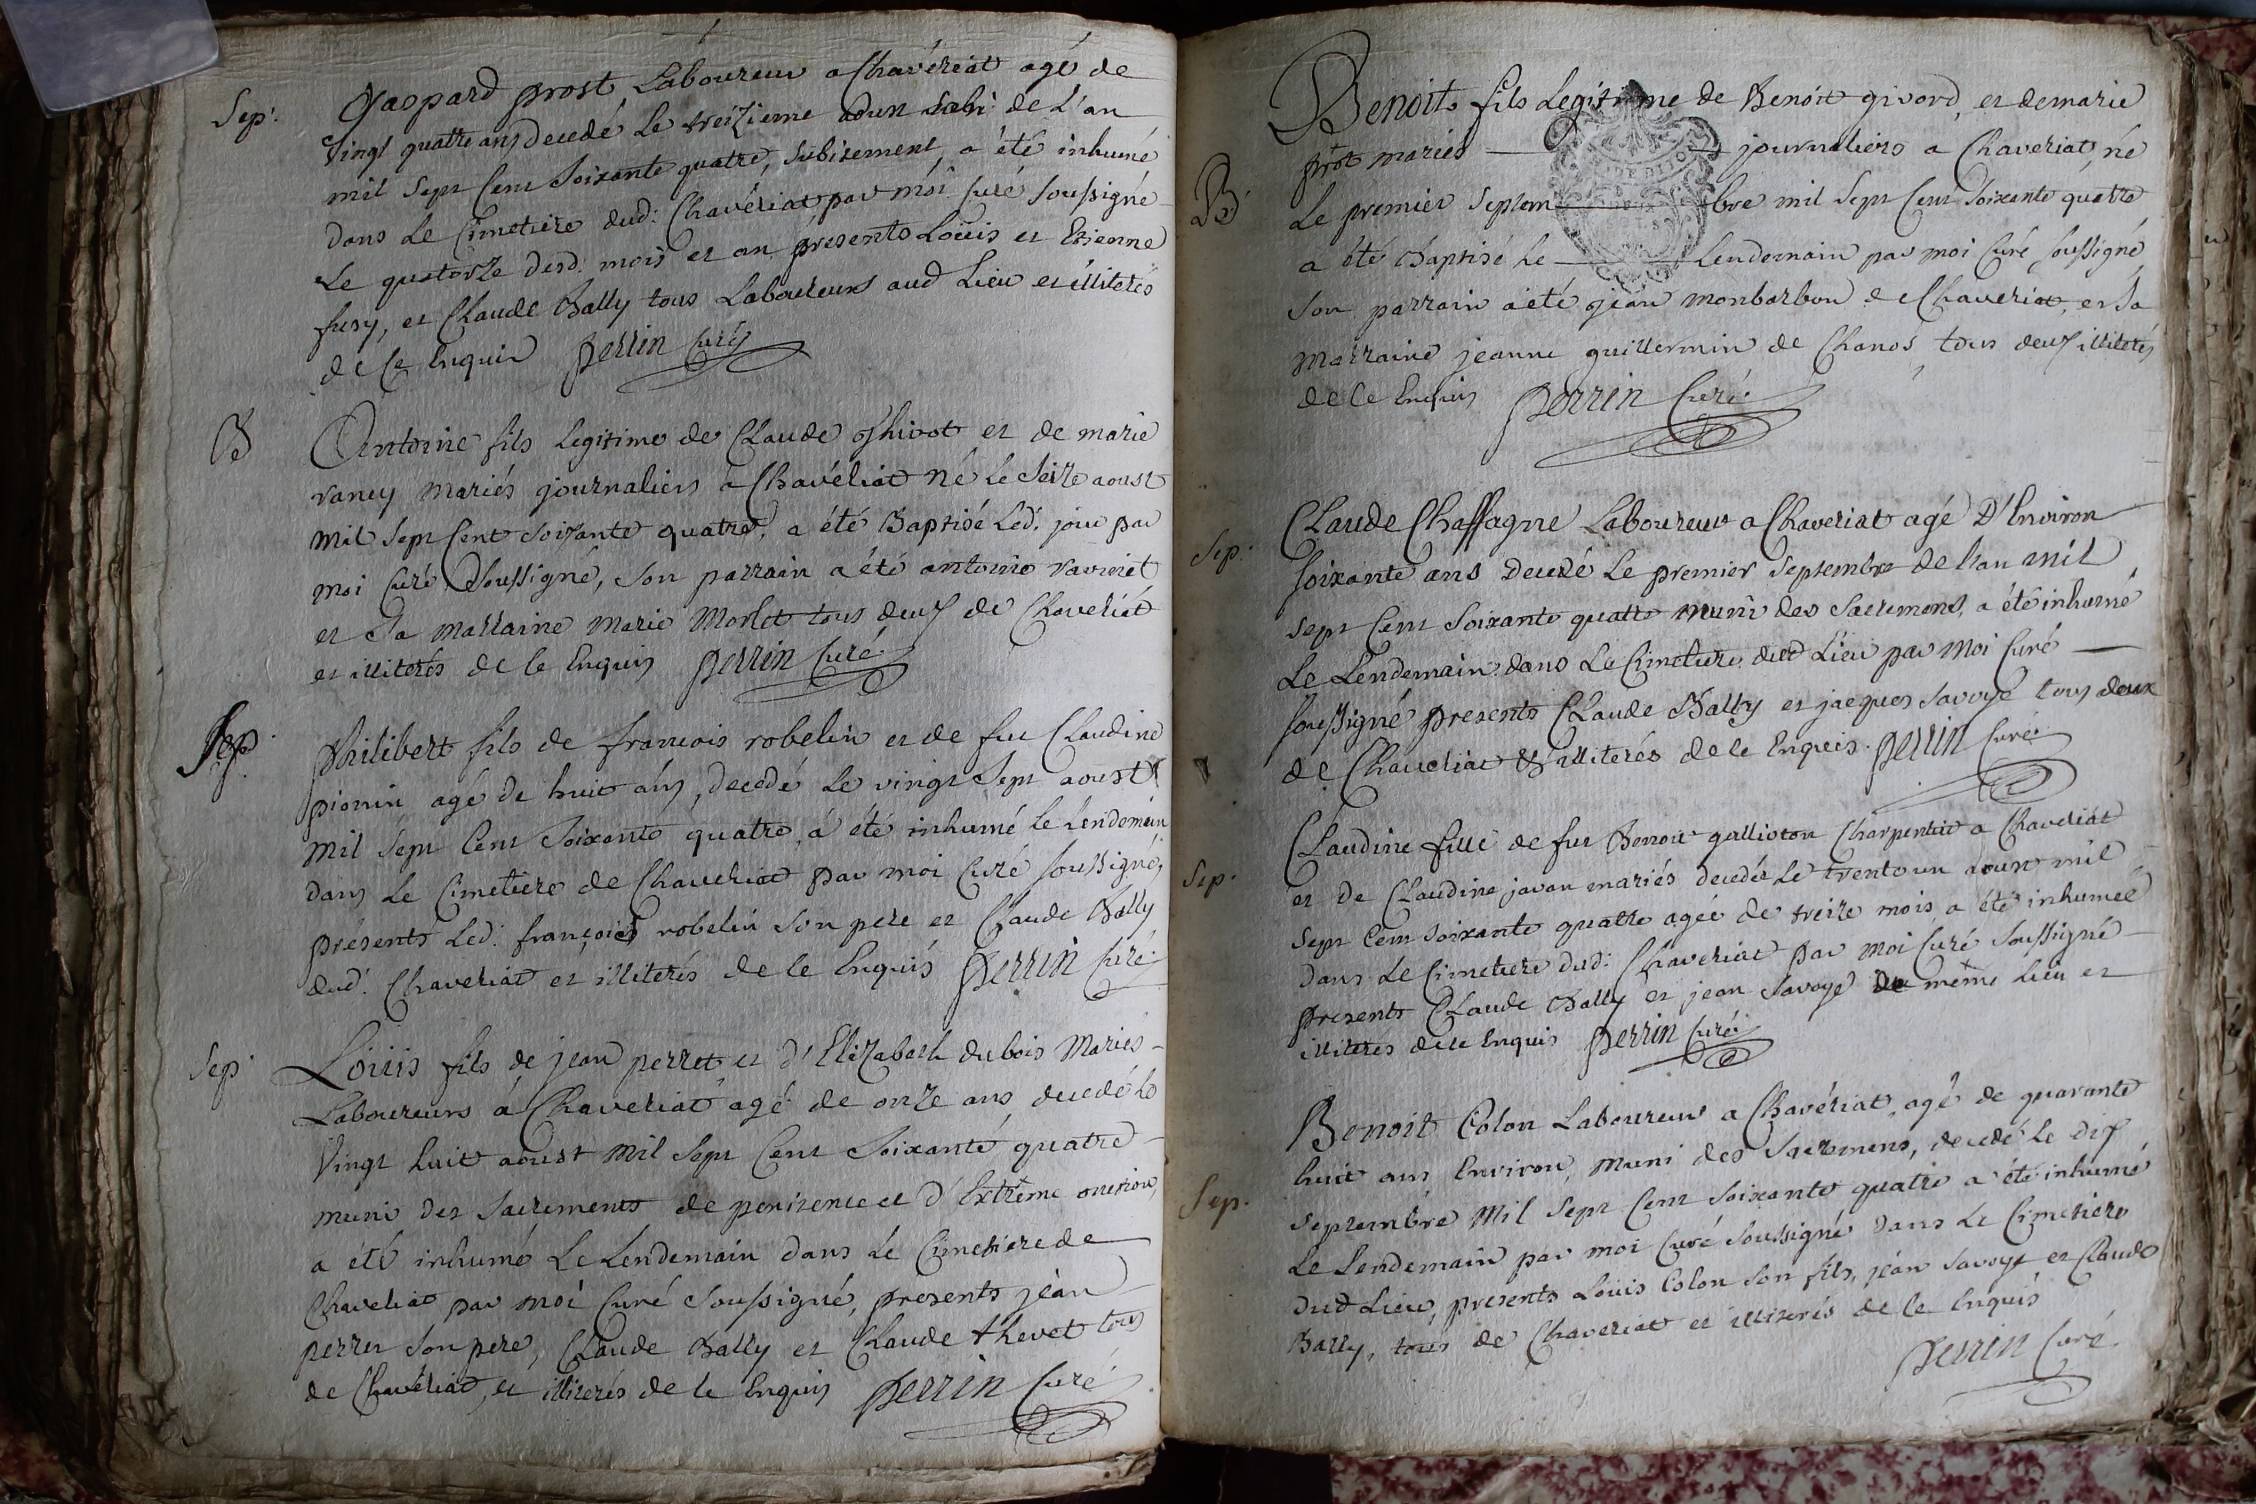 Sep:
Gaspard prost Laboureur a Chavériat agé de
vingt quatre ans decedé le treizieme aoust de L'an
mil sept Cent soixante quatre, subitement, a été inhumé
dans Le Cimetiere dud: Chavériat par moi Curé soussigné
Le quatorze desd: mois et an presents Loüis et Etienne
fusy, et Claude Bally tous Laboureurs aud Lieu et illiterés
de ce Enquis Perrin Curé
B
Antoine fils legitime de Claude et de marie
vaney mariés journaliers a Chavériat né le seize aoust
mil sept Cent soixante quatre, a été Baptisé led: jour par
moi Curé soussigné, son parrain a été antoine
et sa marraine marie Morlot tous deux de Chaveriat
et illiterés de ce Enquis Perrin Curé
Sep:
Philibert fils de francois robelin et de fue Claudine
pionin agé de huit ans, decedé le vingt sept aoust
mil sept Cent soixante quatre, a été inhumé le Lendemain
dans Le Cimetiere de Chaveriat par moi Curé soussigné,
présents Led: françois robelin son pere et Claude Bally
dud: Chaveriat et illiterés de ce Enquis Perrin Curé
Sep:
Loüis fils de jean perret et d'Elizabeth dubois Mariés
Laboureurs á Chaveriat agé de onze ans decedé le
vingt huit aoust mil sept Cent soixante quatre
muni des sacrements de penitence et d'Extrême onction
a été inhumé Le Lendemain dans Le Cimetiere de
Chaveriat par moi Curé soussigné, presents jean
perret son pere, Claude Bally et Claude thevet tous
de Chavériat, et illiterés de ce Enquis Perrin Curé
B
Benoit fils Legitime de Benoit givord, et de marie
prôt mariés journaliers a Chaveriat, né
Le premier septembre mil sept Cent soixante quatre
a été Baptisé le Lendemain par moi Curé soussigné
son parrain a été jean monbarbon de Chaveriat, et sa
marraine jeanne guillermin de Chanos, tous deux illiterés
de ce Enquis Perrin Curé
Sep:
Claude Chaffagne Laboureur a Chaveriat agé D'Environ
soixante ans Decedé Le premier septembre de l'an mil
sept Cent soixante quatre muni des sacremens, a été inhumé
Le Lendemain dans Le Cimetiere dud Lieu par Moi Curé
soussigné presents Claude Bally et jacques savoye tous deux
de Chaveriat & illiterés de ce Enquis. Perrin Curé
Sep:
Claudine fille de fut Benoit gallioton Charpentier a Chaveriat
et De Claudine javan mariés decedée Le trente un aoust mil
sept Cent soixante quatre agée de treize mois a été inhumée
dans Le Cimetiere dud: Chaveriat par moi Curé soussigné
presents Claude Bally et jean savoye du même Lieu et
illiterés de ce Enquis Perrin Curé
Sep.
Benoit Colon Laboureur a Chavériat, agé de quarante
huit ans Environ, muni des sacremens, decedé Le dix
septembre mil sept Cent soixante quatre a été inhumé
Le Lendemain par moi Curé soussigné dans Le Cimetiere
dud Lieu, presents Loüis Colon son fils, jean savoye et Claude
Bally, tous de Chaveriat et illiterés de ce Enquis
Perrin Curé